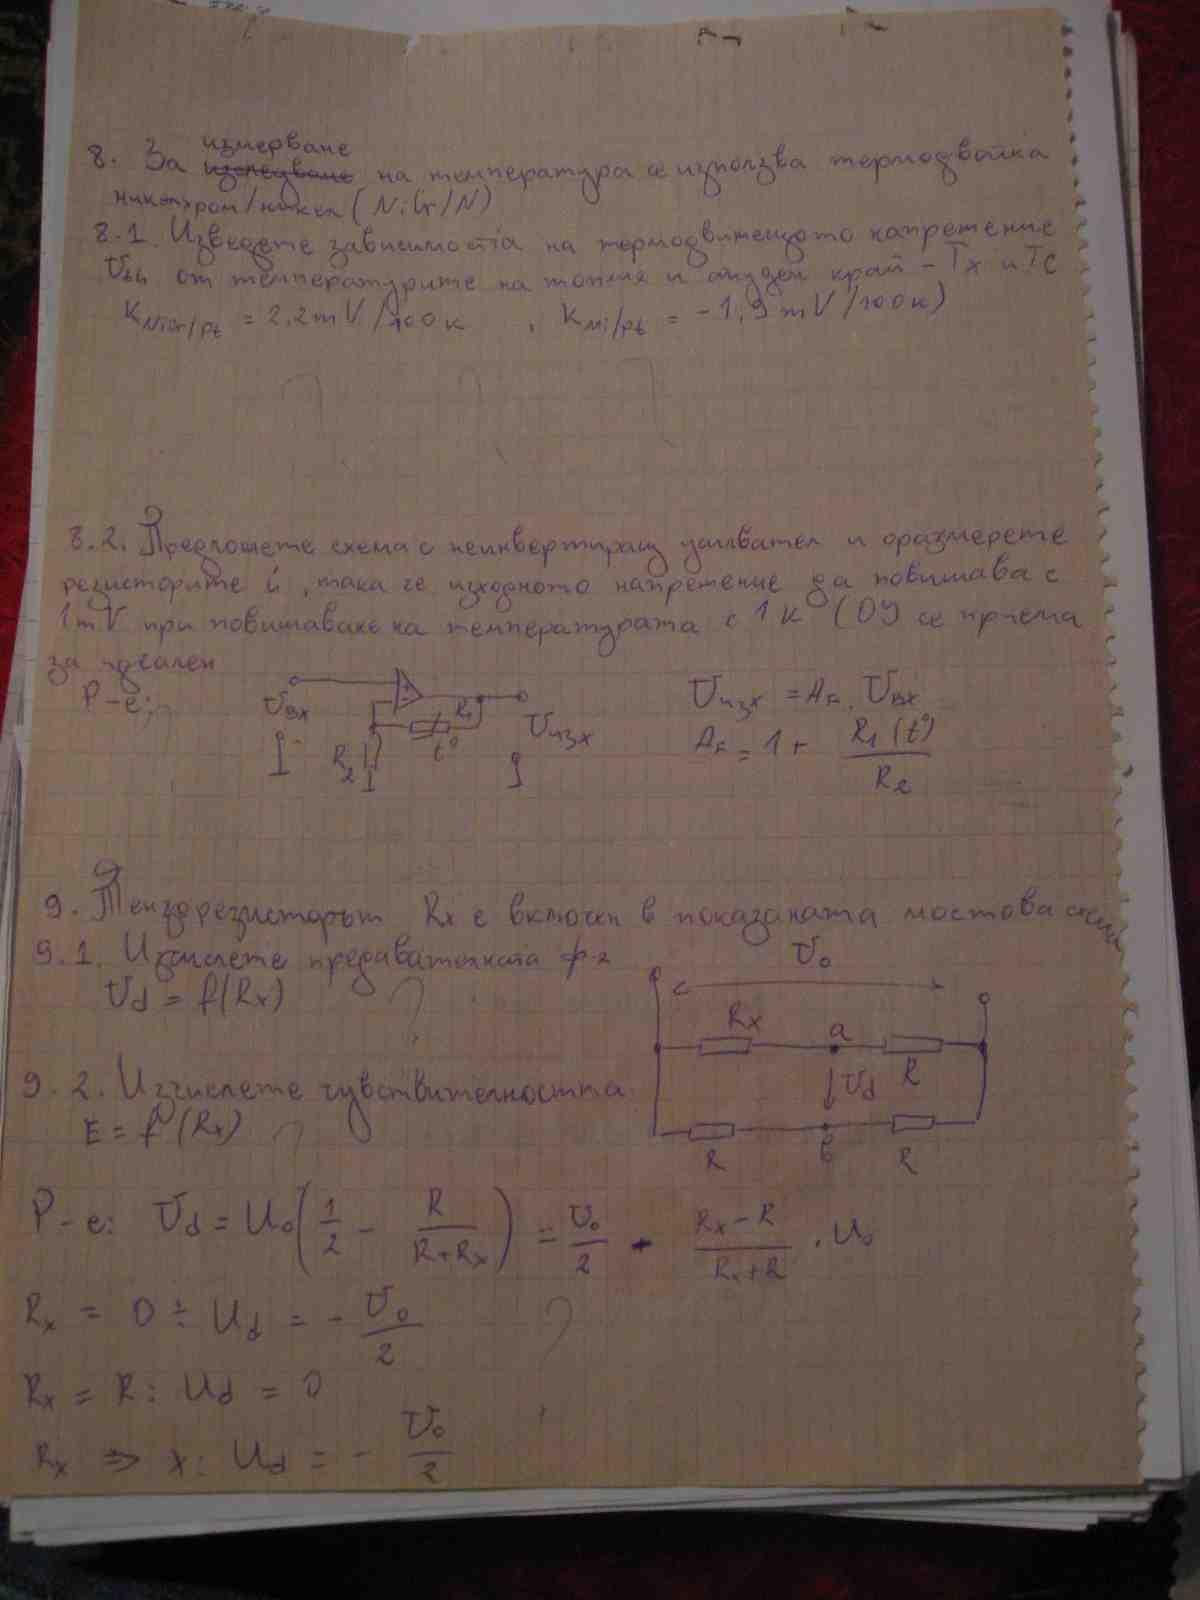 измерване
8. За изследване на температура се използва термодвойка
никелхром/никел (NiCr/N)
8.1. Изведете зависимостта на термодвижещото напрежение
Uth от температурите на топлия и студен край - Tx и Tc
KNiCr/pt = 2,2mV/100K , KNi/pt = -1,9mV/100K)
8.2. Предложете схема с неинвертиращ усилвател и оразмерете
резисторите ѝ, така че изходното напрежение да повишава с
1mV при повишаване на температурата с 1K (ОУ се приема
за идеален
Р-е:
Uвх
R1
t°
R2
Uизх
Uизх = AF. Uвх
AF = 1 + R1(t°) / R2
9. Тензорезисторът Rx е включен в показаната мостова схема
9.1. Изчислете предавателната ф-я
Ud = f(Rx)
?
U0
Rx
a
R
Ud
R
б
R
9.2. Изчислете чувствителността
E = f(Rx)
?
Р-е: Ud = U0(1/2 - R/(R+Rx)) = U0/2 · (Rx-R)/(Rx+R) . U0
Rx = 0 ÷ Ud = - U0/2
?
Rx = R : Ud = 0
Rx => x : Ud = - U0/2